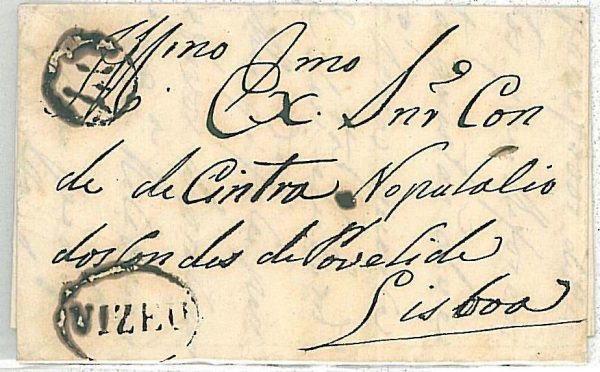 Illmo Smo
Ex. Snr Con
de de Cintra No palacio
dos Condes de Povolide
Lisboa
VIZEU